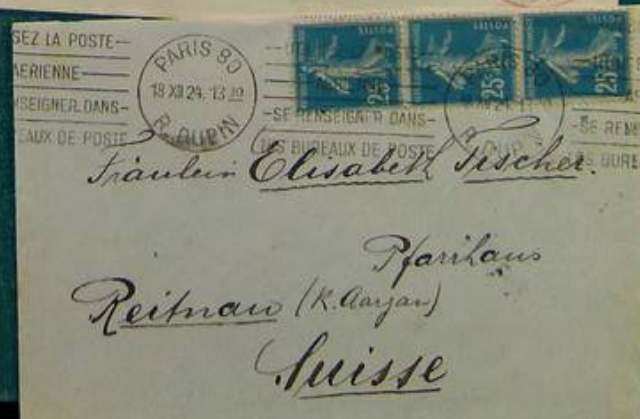 SEZ LA POSTE
AERIENNE
NSEIGNER DANS
EAUX DE POSTE
PARIS 80
18 XII 24. 13 20
R. DUPIN
POSTES POSTES POSTES
25 25 25
-SE RENSEIGNER DANS-
LES BUREAUX DE POSTE
-SE RENS
ES BURE
Fräulein Elisabeth Fischer.
Pfarrhaus
Reitnau (K. Aargau)
Suisse